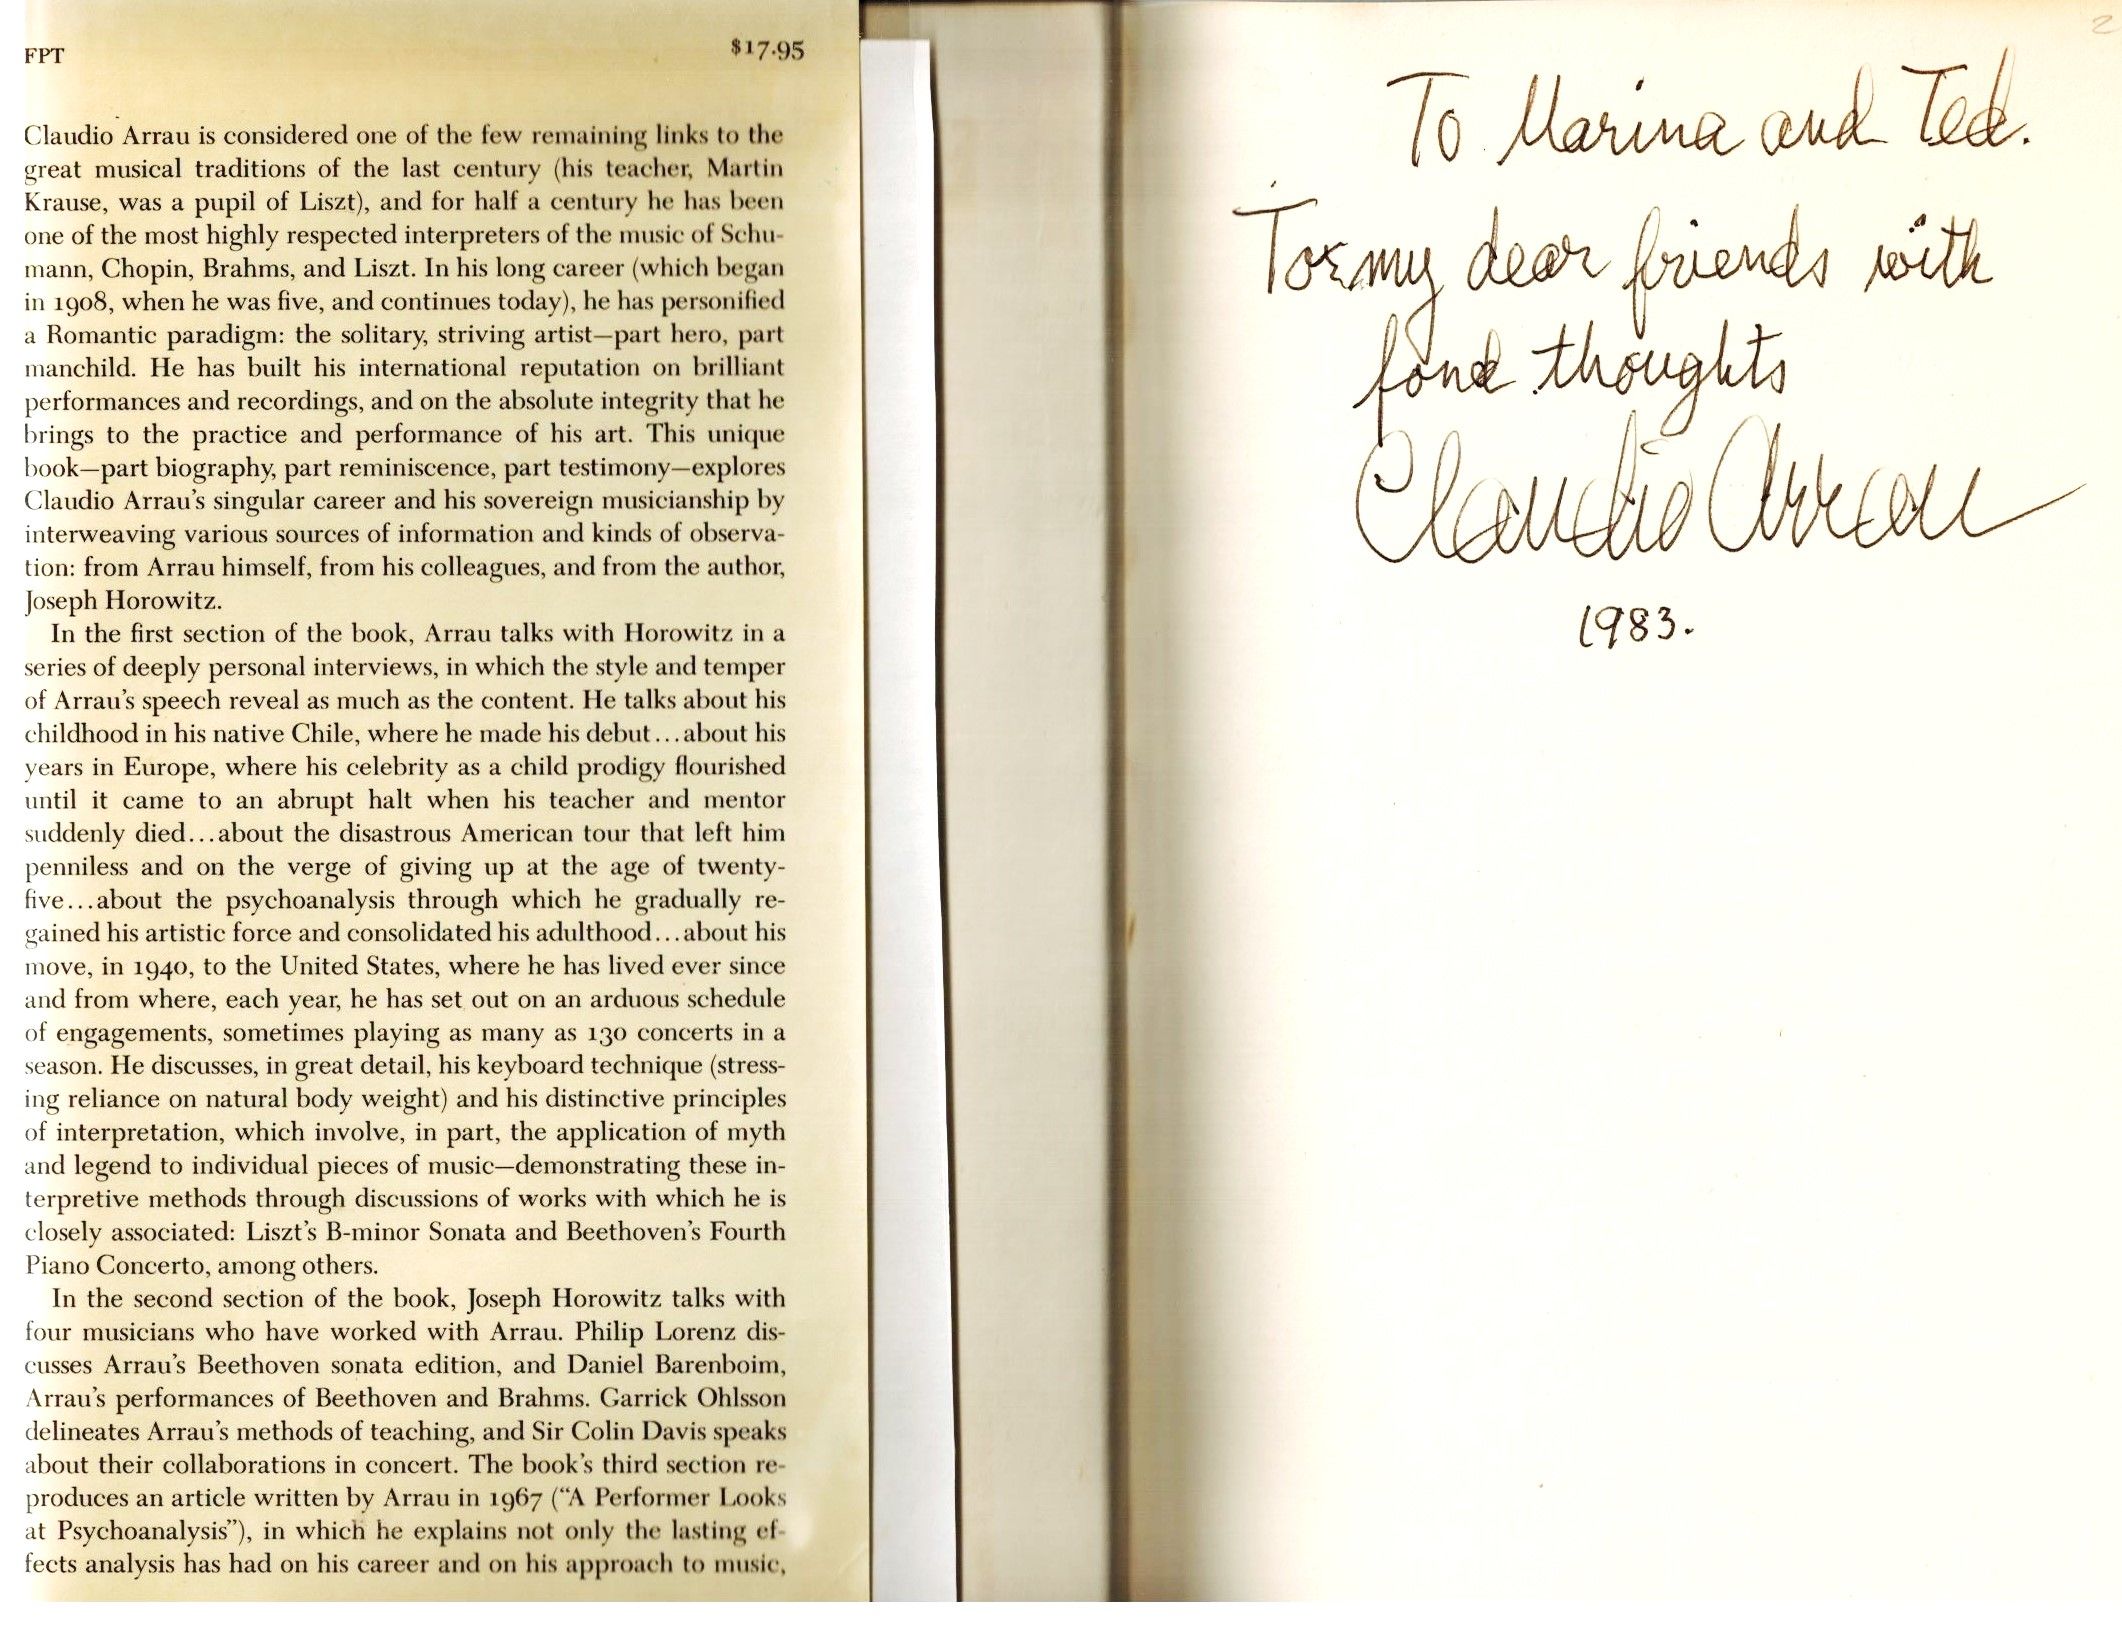 FPT
$17.95
Claudio Arrau is considered one of the few remaining links to the
great musical traditions of the last century (his teacher, Martin
Krause, was a pupil of Liszt), and for half a century he has been
one of the most highly respected interpreters of the music of Schu-
mann, Chopin, Brahms, and Liszt. In his long career (which began
in 1908, when he was five, and continues today), he has personified
a Romantic paradigm: the solitary, striving artist—part hero, part
manchild. He has built his international reputation on brilliant
performances and recordings, and on the absolute integrity that he
brings to the practice and performance of his art. This unique
book—part biography, part reminiscence, part testimony—explores
Claudio Arrau's singular career and his sovereign musicianship by
interweaving various sources of information and kinds of observa-
tion: from Arrau himself, from his colleagues, and from the author,
Joseph Horowitz.
In the first section of the book, Arrau talks with Horowitz in a
series of deeply personal interviews, in which the style and temper
of Arrau's speech reveal as much as the content. He talks about his
childhood in his native Chile, where he made his debut...about his
years in Europe, where his celebrity as a child prodigy flourished
until it came to an abrupt halt when his teacher and mentor
suddenly died...about the disastrous American tour that left him
penniless and on the verge of giving up at the age of twenty-
five...about the psychoanalysis through which he gradually re-
gained his artistic force and consolidated his adulthood...about his
move, in 1940, to the United States, where he has lived ever since
and from where, each year, he has set out on an arduous schedule
of engagements, sometimes playing as many as 130 concerts in a
season. He discusses, in great detail, his keyboard technique (stress-
ing reliance on natural body weight) and his distinctive principles
of interpretation, which involve, in part, the application of myth
and legend to individual pieces of music—demonstrating these in-
terpretive methods through discussions of works with which he is
closely associated: Liszt's B-minor Sonata and Beethoven's Fourth
Piano Concerto, among others.
In the second section of the book, Joseph Horowitz talks with
four musicians who have worked with Arrau. Philip Lorenz dis-
cusses Arrau's Beethoven sonata edition, and Daniel Barenboim,
Arrau's performances of Beethoven and Brahms. Garrick Ohlsson
delineates Arrau's methods of teaching, and Sir Colin Davis speaks
about their collaborations in concert. The book's third section re-
produces an article written by Arrau in 1967 ("A Performer Looks
at Psychoanalysis"), in which he explains not only the lasting ef-
fects analysis has had on his career and on his approach to music,
To Marina and Ted.
To my dear friends with
fond thoughts
Claudio Arrau
1983.